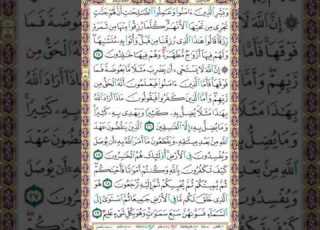 وَبَشِّرِ الَّذِينَ ءَامَنُوا وَعَمِلُوا الصَّٰلِحَٰتِ أَنَّ لَهُمْ جَنَّٰتٍ
تَجْرِي مِن تَحْتِهَا الْأَنْهَٰرُ كُلَّمَا رُزِقُوا مِنْهَا مِن ثَمَرَةٍ
رِّزْقًا قَالُوا هَٰذَا الَّذِي رُزِقْنَا مِن قَبْلُ وَأُتُوا بِهِ مُتَشَٰبِهًا
وَلَهُمْ فِيهَا أَزْوَٰجٌ مُّطَهَّرَةٌ وَهُمْ فِيهَا خَٰلِدُونَ ٢٥
إِنَّ اللَّهَ لَا يَسْتَحْيِ أَن يَضْرِبَ مَثَلًا مَّا بَعُوضَةً فَمَا
فَوْقَهَا فَأَمَّا الَّذِينَ ءَامَنُوا فَيَعْلَمُونَ أَنَّهُ الْحَقُّ مِن
رَّبِّهِمْ وَأَمَّا الَّذِينَ كَفَرُوا فَيَقُولُونَ مَاذَا أَرَادَ اللَّهُ
بِهَٰذَا مَثَلًا يُضِلُّ بِهِ كَثِيرًا وَيَهْدِي بِهِ كَثِيرًا
وَمَا يُضِلُّ بِهِ إِلَّا الْفَٰسِقِينَ ٢٦ الَّذِينَ يَنقُضُونَ عَهْدَ
اللَّهِ مِن بَعْدِ مِيثَٰقِهِ وَيَقْطَعُونَ مَا أَمَرَ اللَّهُ بِهِ أَن يُوصَلَ
وَيُفْسِدُونَ فِي الْأَرْضِ أُولَٰئِكَ هُمُ الْخَٰسِرُونَ ٢٧
كَيْفَ تَكْفُرُونَ بِاللَّهِ وَكُنتُمْ أَمْوَٰتًا فَأَحْيَٰكُمْ
ثُمَّ يُمِيتُكُمْ ثُمَّ يُحْيِيكُمْ ثُمَّ إِلَيْهِ تُرْجَعُونَ ٢٨ هُوَ
الَّذِي خَلَقَ لَكُم مَّا فِي الْأَرْضِ جَمِيعًا ثُمَّ اسْتَوَىٰ إِلَى
السَّمَاءِ فَسَوَّىٰهُنَّ سَبْعَ سَمَٰوَٰتٍ وَهُوَ بِكُلِّ شَيْءٍ عَلِيمٌ ٢٩